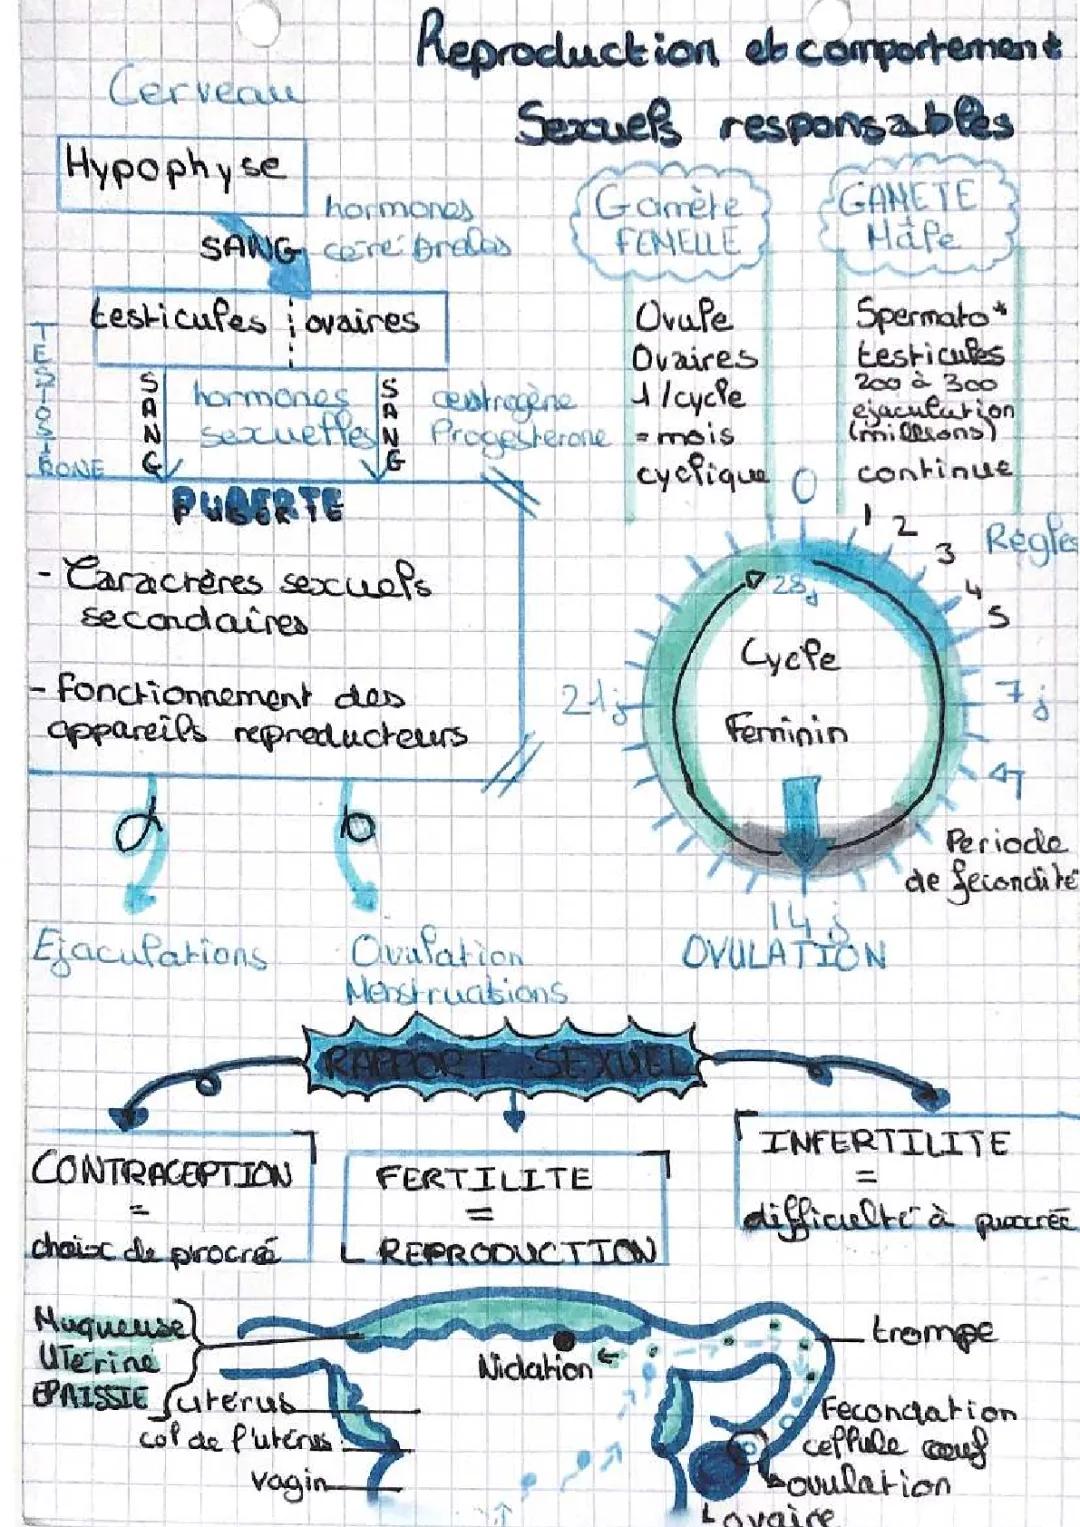 Reproduction et comportement
Sexuels responsables
Cerveau
Hypophyse
hormones
cérébrales
SANG
testicules ovaires
TESTOSTÉRONE
SANG
hormones
sexuelles
SANG
œstrogène
Progesterone
PUBERTE
- Caractères sexuels
secondaires
- fonctionnement des
appareils reproducteurs
Ejaculations
Ovulation
Menstruations
Gamète
FEMELLE
Ovule
Ovaires
1/cycle
= mois
cyclique
GAMETE
Mâle
Spermato*
testicules
200 à 300
ejaculation
(millions)
continue
0
1
2
3
4
5
Règles
7j
14j
OVULATION
21j
28j
Cycle
Feminin
Periode
de fecondité
RAPPORT SEXUEL
CONTRACEPTION
=
choix de procréé
FERTILITE
=
REPRODUCTION
INFERTILITE
=
difficulté à procréé
Muqueuse
UTérine
EPAISSIE
utérus
col de l'utérus
vagin
Nidation
trompe
Fecondation
cellule œuf
ovulation
ovaire